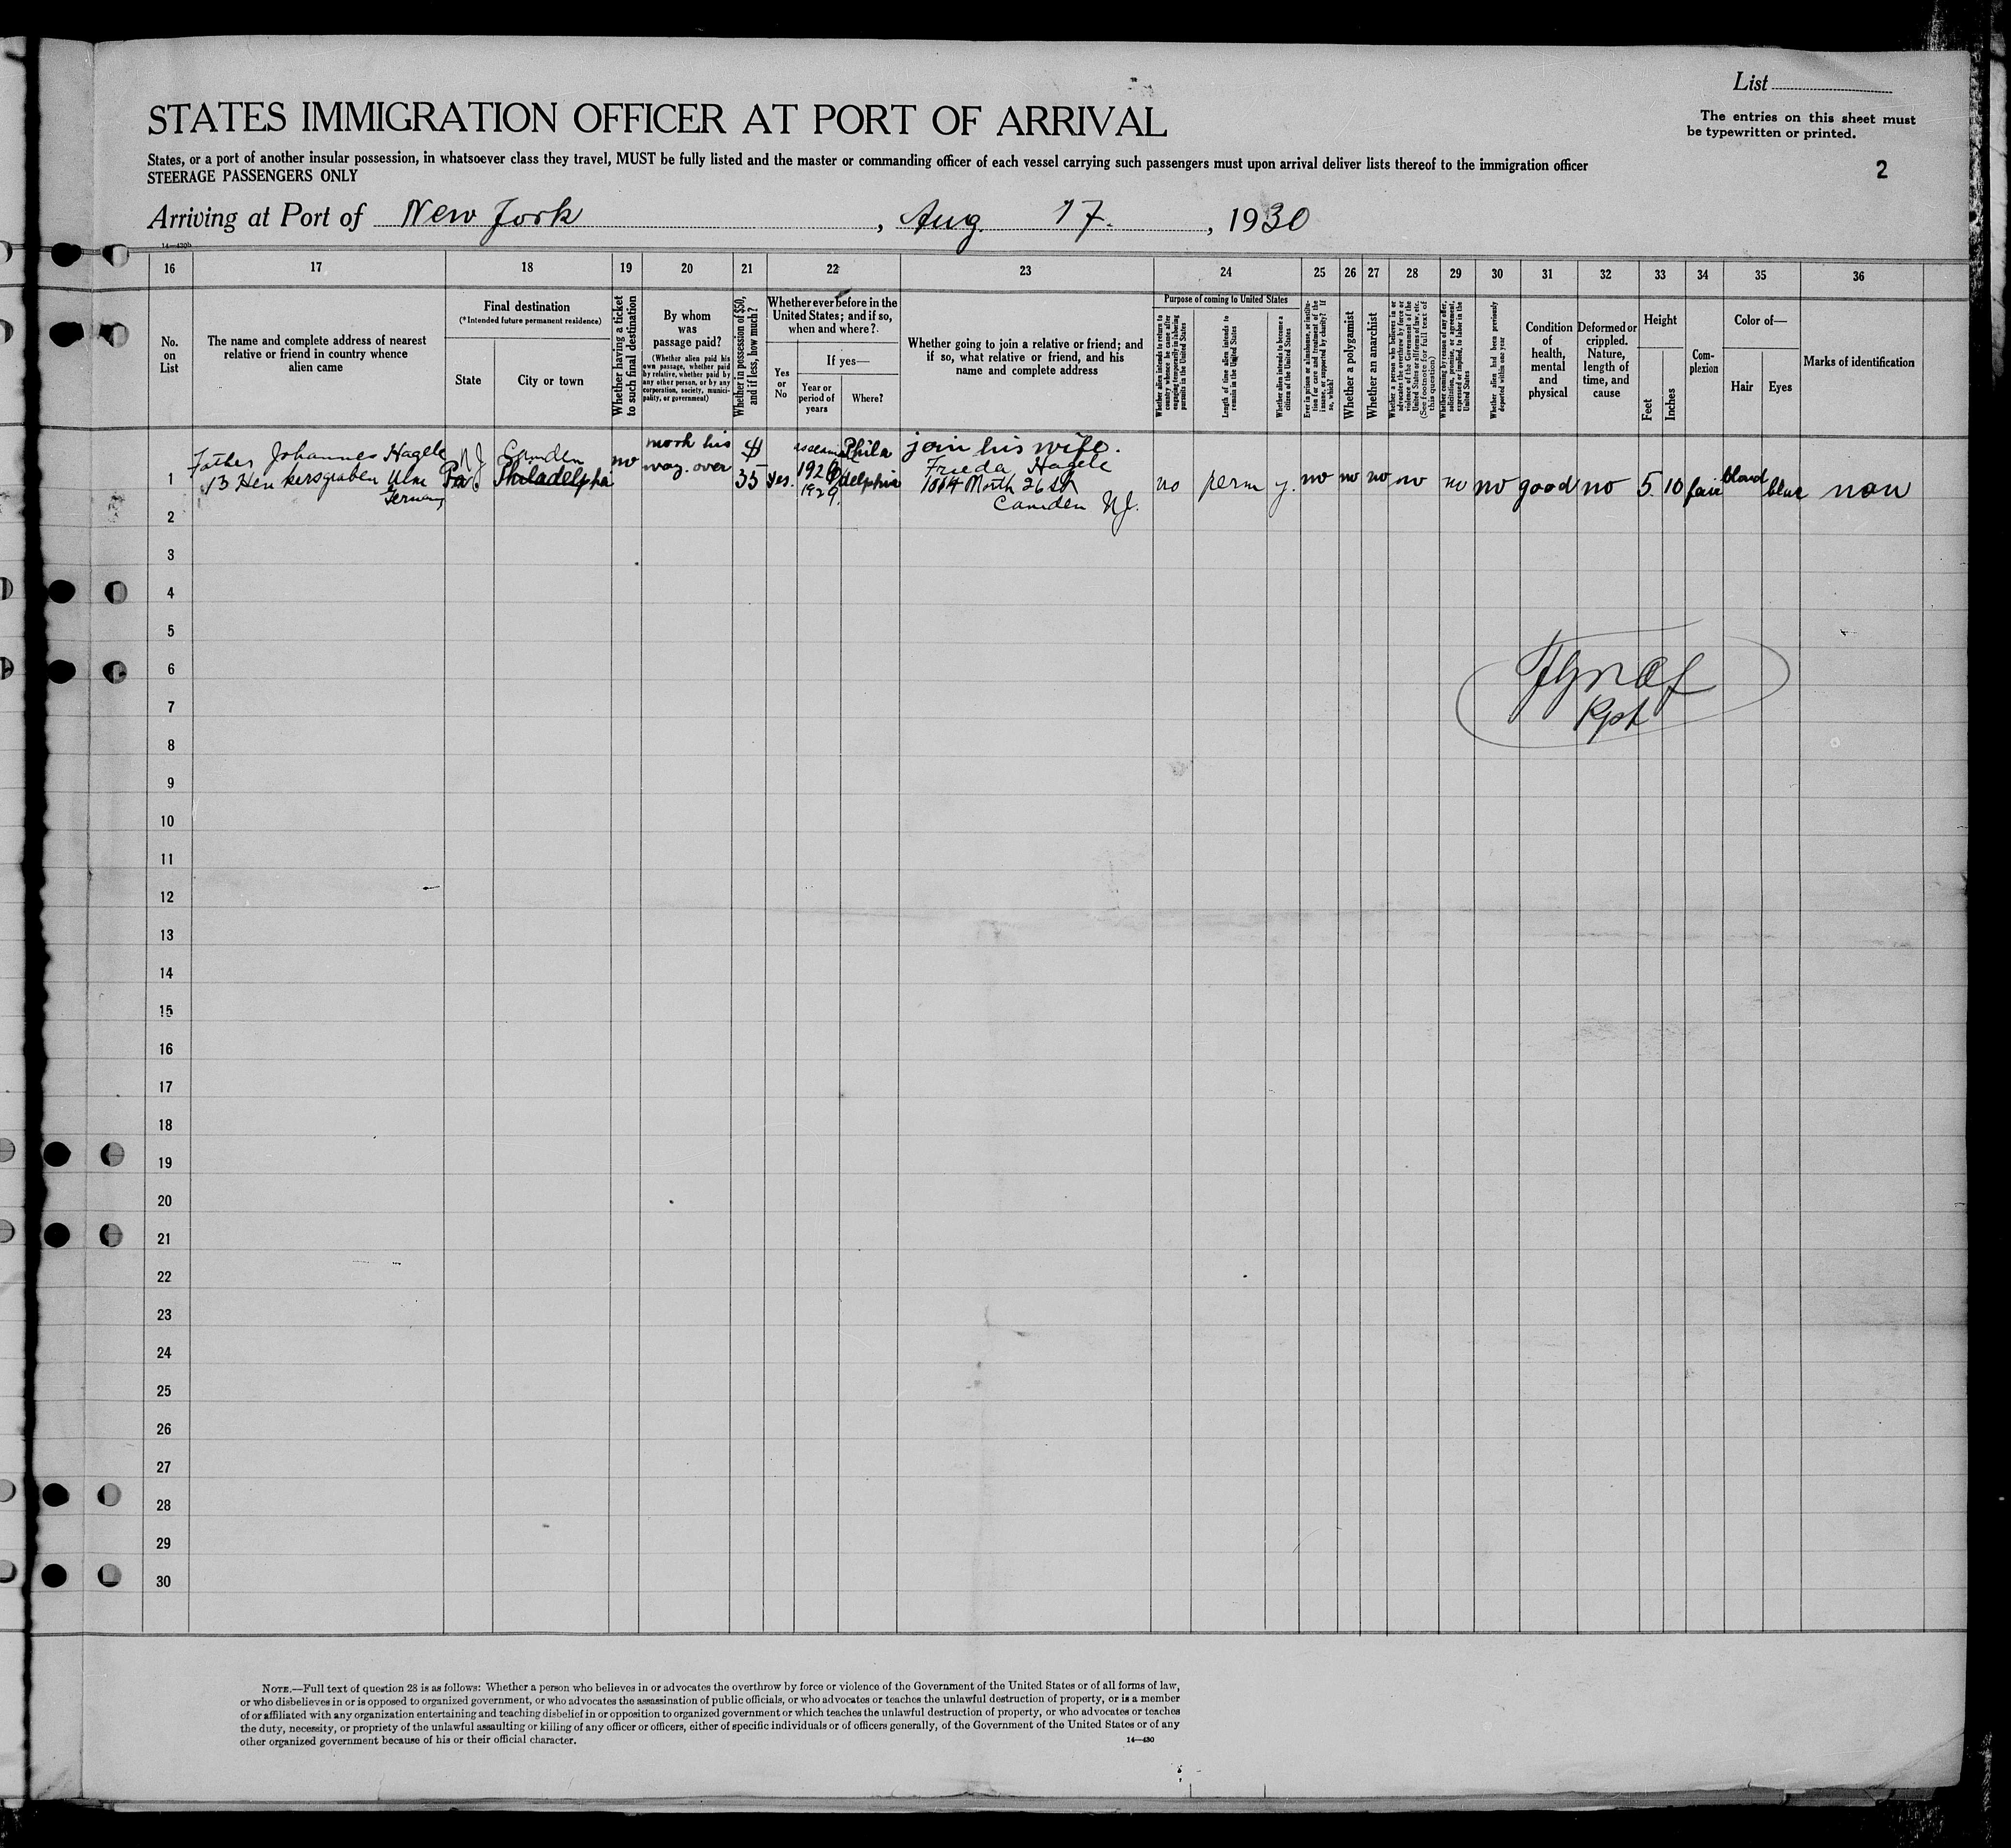 List
The entries on this sheet must
be typewritten or printed.
2
STATES IMMIGRATION OFFICER AT PORT OF ARRIVAL
States, or a port of another insular possession, in whatsoever class they travel, MUST be fully listed and the master or commanding officer of each vessel carrying such passengers must upon arrival deliver lists thereof to the immigration officer
STEERAGE PASSENGERS ONLY
Arriving at Port of New York, Aug 17., 1930
14—430b
16 17 18 19 20 21 22 23 24 25 26 27 28 29 30 31 32 33 34 35 36
No.
on
List
The name and complete address of nearest
relative or friend in country whence
alien came
Final destination
(*Intended future permanent residence)
State
City or town
Whether having a ticket
to such final destination
By whom
was
passage paid?
(Whether alien paid his
own passage, whether paid
by relative, whether paid by
any other person, or by any
corporation, society, munici-
pality, or government)
Whether in possession of $50,
and if less, how much?
Whether ever before in the
United States; and if so,
when and where?
Yes
or
No
If yes—
Year or
period of
years
Where?
Whether going to join a relative or friend; and
if so, what relative or friend, and his
name and complete address
Purpose of coming to United States
Whether alien intends to return to
country whence he came after
engaging temporarily in laboring
pursuits in the United States
Length of time alien intends to
remain in the United States
Whether alien intends to become a
citizen of the United States
Ever in prison or almshouse, or institu-
tion for care and treatment of the
insane, or supported by charity? If
so, which?
Whether a polygamist
Whether an anarchist
Whether a person who believes in or
advocates the overthrow by force or
violence of the Government of the
United States or all forms of law, etc.
(See footnote for full text of
this question)
Whether coming by reason of any offer,
solicitation, promise, or agreement,
expressed or implied, to labor in the
United States
Whether alien had been previously
deported within one year
Condition
of
health,
mental
and
physical
Deformed or
crippled.
Nature,
length of
time, and
cause
Height
Feet
Inches
Com-
plexion
Color of—
Hair
Eyes
Marks of identification
Father Johannes Hagele
13 Henkersgraben Ulm
Germany
NJ Camden
Pa Philadelpha
no
work his
way. over
$
35
yes.
1929
Phila
delphia
join his wife.
Frieda Hagele
1004 North 26 St
Camden NJ.
no perm y. no no no no no no good no 5 10 fair blond blue non
1
2
3
4
5
6
7
8
9
10
11
12
13
14
15
16
17
18
19
20
21
22
23
24
25
26
27
28
29
30
NOTE.—Full text of question 28 is as follows: Whether a person who believes in or advocates the overthrow by force or violence of the Government of the United States or of all forms of law,
or who disbelieves in or is opposed to organized government, or who advocates the assassination of public officials, or who advocates or teaches the unlawful destruction of property, or is a member
of or affiliated with any organization entertaining and teaching disbelief in or opposition to organized government or which teaches the unlawful destruction of property, or who advocates or teaches
the duty, necessity, or propriety of the unlawful assaulting or killing of any officer or officers, either of specific individuals or of officers generally, of the Government of the United States or of any
other organized government because of his or their official character.
14—430